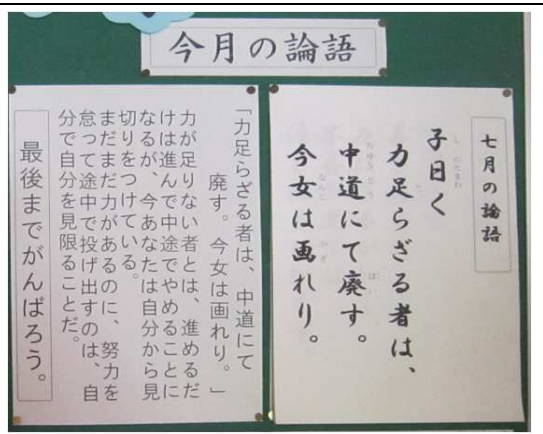 今月の論語
七月の論語
子曰く
力足らざる者は、
中道にて廃す。
今女は画れり。
「力足らざる者は、中道にて
廃す。今女は画れり。」
力が足りない者とは、進めるだ
けは進んで中途でやめることに
なるが、今あなたは自分から見
切りをつけている。
まだまだ力があるのに、努力を
怠って途中で投げ出すのは、自
分で自分を見限ることだ。
最後までがんばろう。